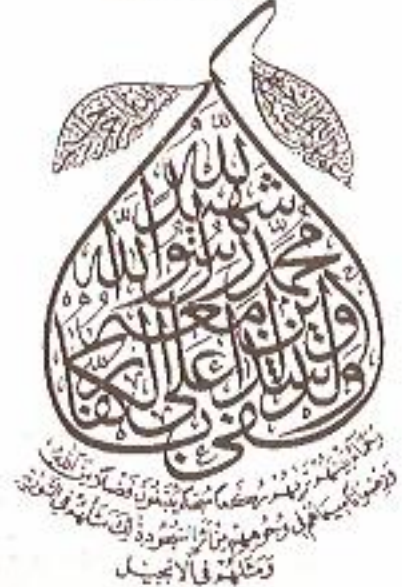 وكفى بالله شهيدا
محمد رسول الله
والذين معه
أشداء على الكفار
رحماء بينهم تريهم ركعا سجدا يبتغون فضلا من الله
ورضوانا سيماهم في وجوههم من أثر السجود ذلك مثلهم في التورية
ومثلهم في الانجيل